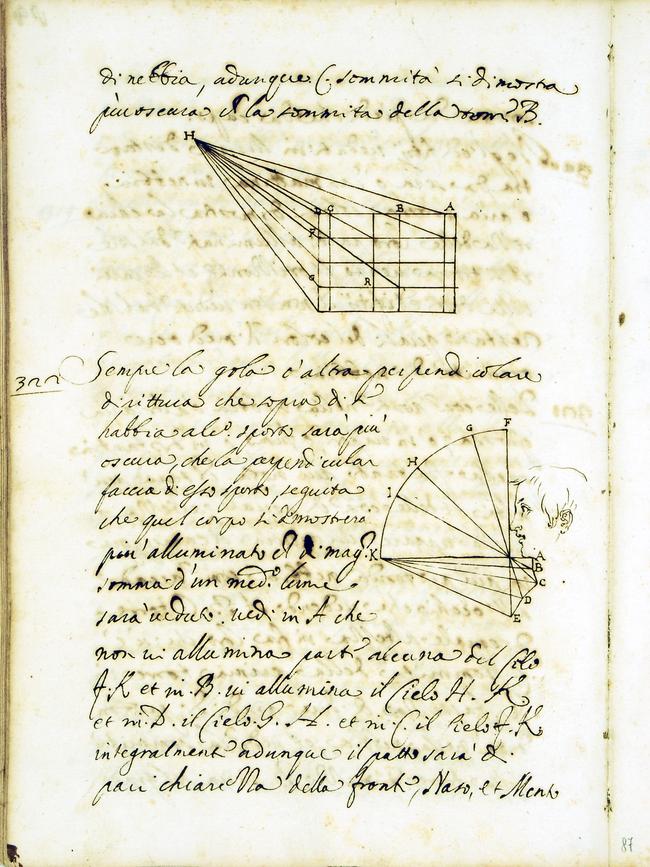 di nebbia, adunque C. sommità si dimostra
più oscura che la sommita della torre B.
H
D C B A
F
G R
322
Sempre la gola o' altra perpendicolare
dirittura che sopra di sé
habbia alc.º sporto sarà più
oscura, che la perpendicular
faccia di esso sporto, seguita
che quel corpo si dimostrerà
più alluminato che di mag.r
somma d'un med.º lume
sarà veduto. vedi in A che
non vi allumina parte alcuna del Cielo
F.K et in .B. vi allumina il Cielo H. K.
et in D. il Cielo G. H. et in C. il Cielo F.K.
integralmente adunque il petto sarà di
pari chiarezza della fronte, Naso, et Mento
F
G
H
I
K
A
B
C
D
E
87